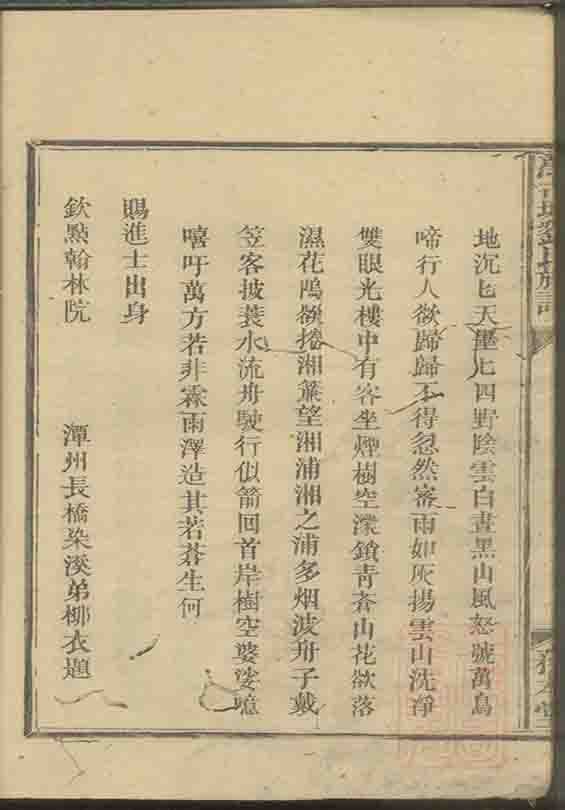 劉氏族譜
地沉匕天墨匕四野陰雲白晝黑山風怒號萬鳥
啼行人欲歸歸不得忽然密雨如灰揚雲山洗淨
雙眼光樓中有客坐煙樹空濛鎖青蒼山花欲落
濕花鳴欲捲湘簾望湘浦湘之浦多烟波舟子戴
笠客披蓑水流舟駛行似箭回首岸樹空婆娑噫
嘻吁萬方若非霖雨澤造其若蒼生何
賜進士出身
欽點翰林院
潭州長橋染溪弟柳衣題